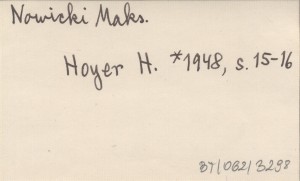 Nowicki Maks.
Hoyer H. *1948, s. 15-16
BT/082/3298